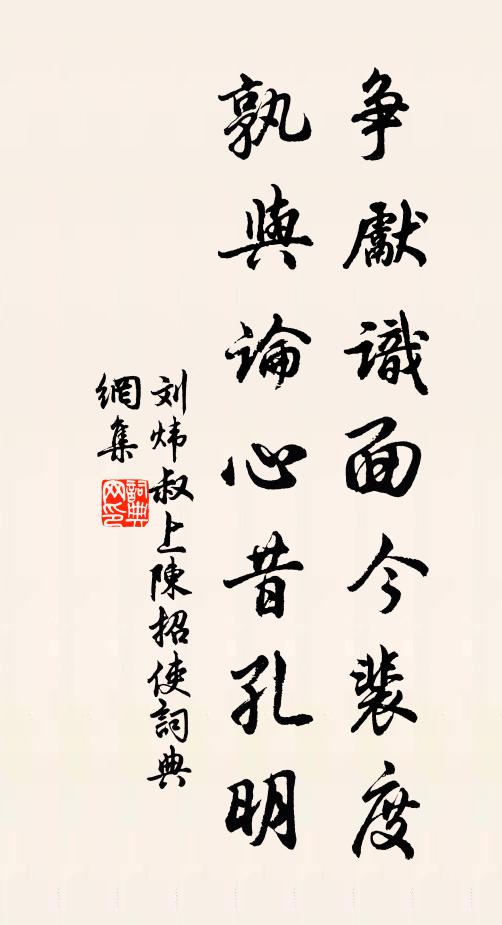 争獻識面今裴度
孰與論心昔孔明
刘炜叔上陳招使詞典
網集